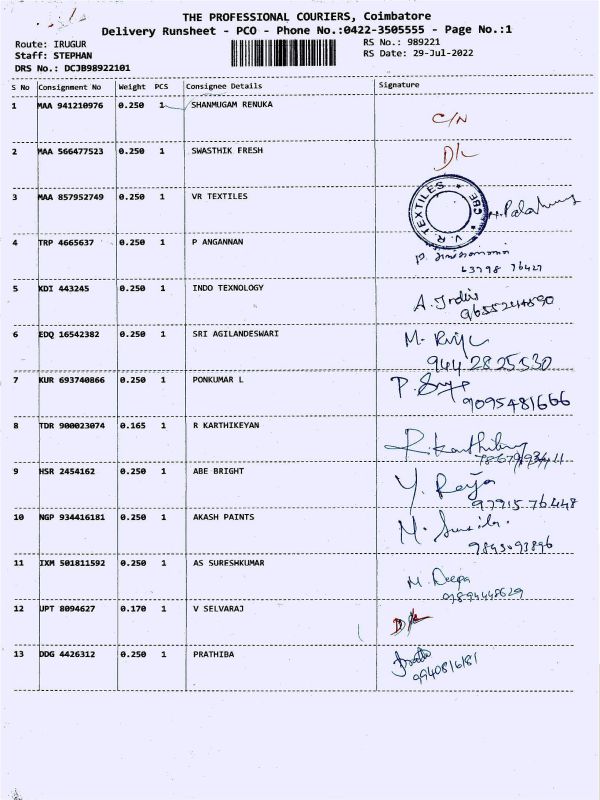 THE PROFESSIONAL COURIERS, Coimbatore
Delivery Runsheet - PCO - Phone No.:0422-3505555 - Page No.:1
Route: IRUGUR
RS No.: 989221
Staff: STEPHAN
RS Date: 29-Jul-2022
DRS No.: DCJB98922101
S No Consignment No Weight PCS Consignee Details Signature
1 MAA 941210976 0.250 1 SHANMUGAM RENUKA
C/N
2 MAA 566477523 0.250 1 SWASTHIK FRESH
D/L
3 MAA 857952749 0.250 1 VR TEXTILES
V.R. TEXTILES ★ CBE ★
4 TRP 4665637 0.250 1 P ANGANNAN
63798 76427
5 KDI 443245 0.250 1 INDO TEXNOLOGY
A. Indu
6 EDQ 16542382 0.250 1 SRI AGILANDESWARI
M.
944 2825530
7 KUR 693740866 0.250 1 PONKUMAR L
P.
9095481666
8 TDR 900023074 0.165 1 R KARTHIKEYAN
R. Karthik
9 HSR 2454162 0.250 1 ABE BRIGHT
Y. Raya
97915 76448
10 NGP 934416181 0.250 1 AKASH PAINTS
M.
9843093896
11 IXM 501811592 0.250 1 AS SURESHKUMAR
M. Deepa
9894448629
12 UPT 8094627 0.170 1 V SELVARAJ
D/L
13 DDG 4426312 0.250 1 PRATHIBA
9940816181